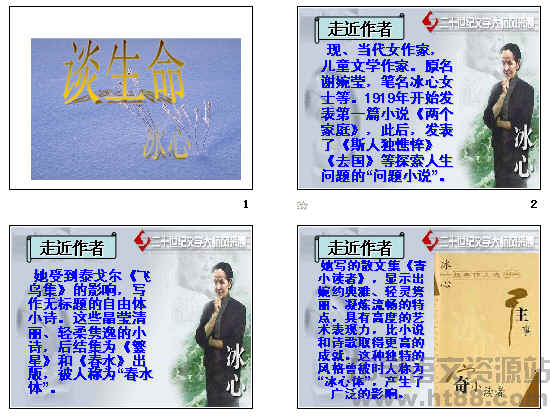 谈生命
冰心
1
走近作者
二十世纪文学大师风采
现、当代女作家，
儿童文学作家。原名
谢婉莹，笔名冰心女
士等。1919年开始发
表第一篇小说《两个
家庭》，此后，发表
了《斯人独憔悴》
《去国》等探索人生
问题的“问题小说”。
冰心
2
走近作者
她受到泰戈尔《飞
鸟集》的影响，写
作无标题的自由体
小诗。这些晶莹清
丽、轻柔隽逸的小
诗，后结集为《繁
星》和《春水》出
版，被人称为“春水
体”。
冰心
3
走近作者
她写的散文集《寄
小读者》，显示出
婉约典雅、轻灵隽
丽、凝炼流畅的特
点，具有高度的艺
术表现力，比小说
和诗歌取得更高的
成就。这种独特的
风格曾被时人称为
“冰心体”，产生了
广泛的影响。
冰心
寄小读者
4
www.ht88.com